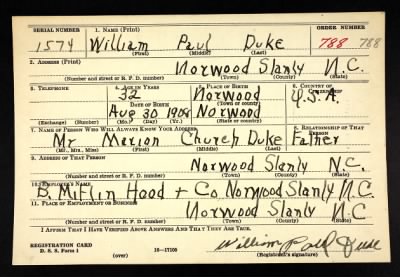 SERIAL NUMBER 1. NAME (Print) ORDER NUMBER
1574 William Paul Duke 788 788
(First) (Middle) (Last)
2. ADDRESS (Print)
Norwood Stanly N.C.
(Number and street or R. F. D. number) (Town) (County) (State)
3. TELEPHONE 4. AGE IN YEARS 5. PLACE OF BIRTH 6. COUNTRY OF CITIZENSHIP
32 Norwood U.S.A.
DATE OF BIRTH (Town or county)
Aug 30 1908 Norwood
(Exchange) (Number) (Mo.) (Day) (Yr.) (State or country)
7. NAME OF PERSON WHO WILL ALWAYS KNOW YOUR ADDRESS 8. RELATIONSHIP OF THAT PERSON
Mr. Marion Church Duke Father
(Mr., Mrs., Miss) (First) (Middle) (Last)
9. ADDRESS OF THAT PERSON
Norwood Stanly N.C.
(Number and street or R. F. D. number) (Town) (County) (State)
10. EMPLOYER'S NAME
B. Hood + Co Norwood Stanly N.C.
11. PLACE OF EMPLOYMENT OR BUSINESS
Norwood Stanly N.C.
(Number and street or R. F. D. number) (Town) (County) (State)
I AFFIRM THAT I HAVE VERIFIED ABOVE ANSWERS AND THAT THEY ARE TRUE.
REGISTRATION CARD
D. S. S. Form 1 16—17105 William Paul Duke
(over) (Registrant's signature)